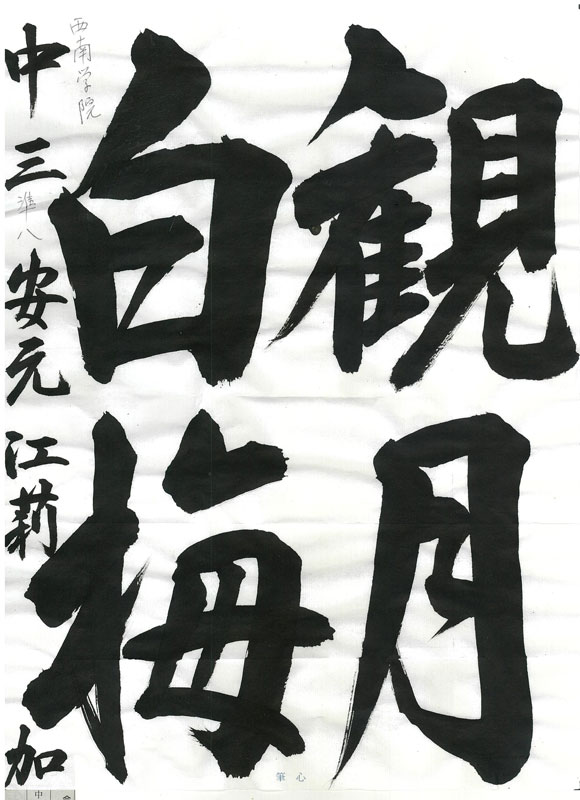 観月
白梅
西南学院
中三 準八 安元 江莉 加
筆心
中